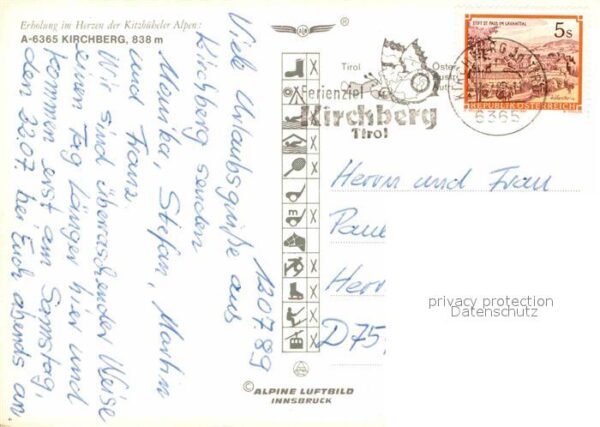 Erholung im Herzen der Kitzbüheler Alpen:
A-6365 KIRCHBERG, 838 m
120789
Viele Urlaubsgrüße aus
Kirchberg senden
Monika, Stefan, Martin
und Franz.
Wir sind überraschender Weise
einen Tag länger hier und
kommen erst am Samstag,
den 22.07. bei Euch abends an
Tirol
Ferienziel
Kirchberg
Tirol
6365
STIFT ST. PAUL IM LAVANTTAL
5 S
REPUBLIK ÖSTERREICH
Herrn und Frau
Herr
D 75
privacy protection
Datenschutz
© ALPINE LUFTBILD
INNSBRUCK